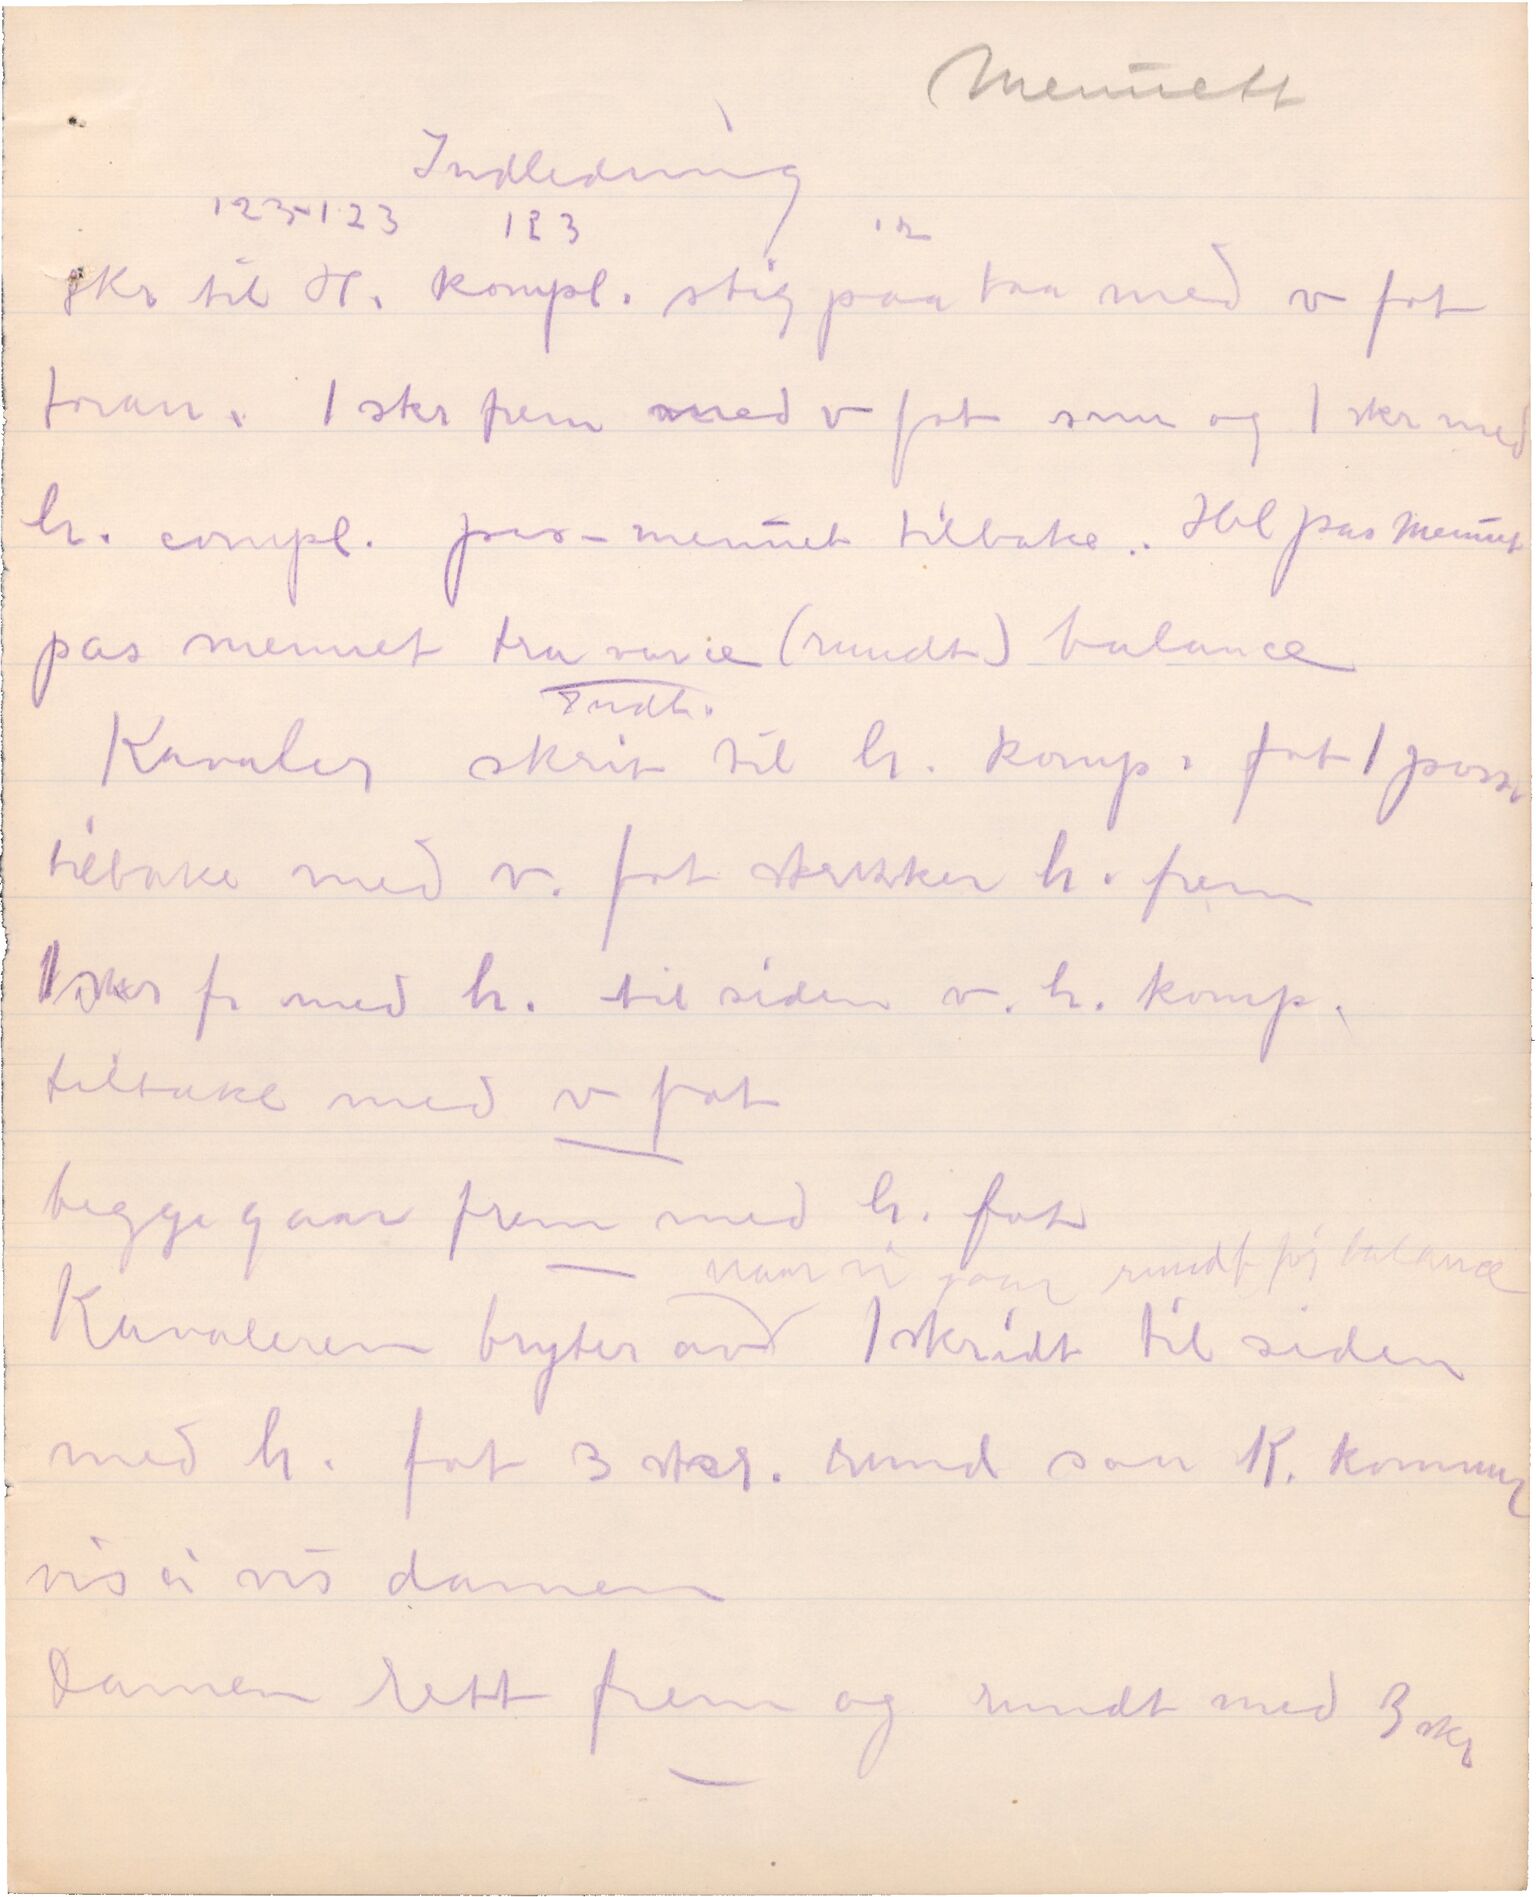 Menuett
Indledning
123-123 123 12
skr til H. kompl. stig paa taa med v fot
foran. 1 skr frem med v fot snu og 1 skr med
h. compl. pas-menuet tilbake.. Hel pas Menuet
pas menuet (rundt) balance
Kavaler skrit til h. komp. fot 1
tilbake med v. fot strekker h. frem
1 skr fr med h. til siden v. h. komp.
tilbake med v fot
begge gaar frem med h. fot
naar vi gaar rundt balance
Kavaleren bryter av 1 skridt til siden
med h. fot 3 skr. rund saa K. kommer
vis à vis damen
Damen rett frem og rundt med 3 skr